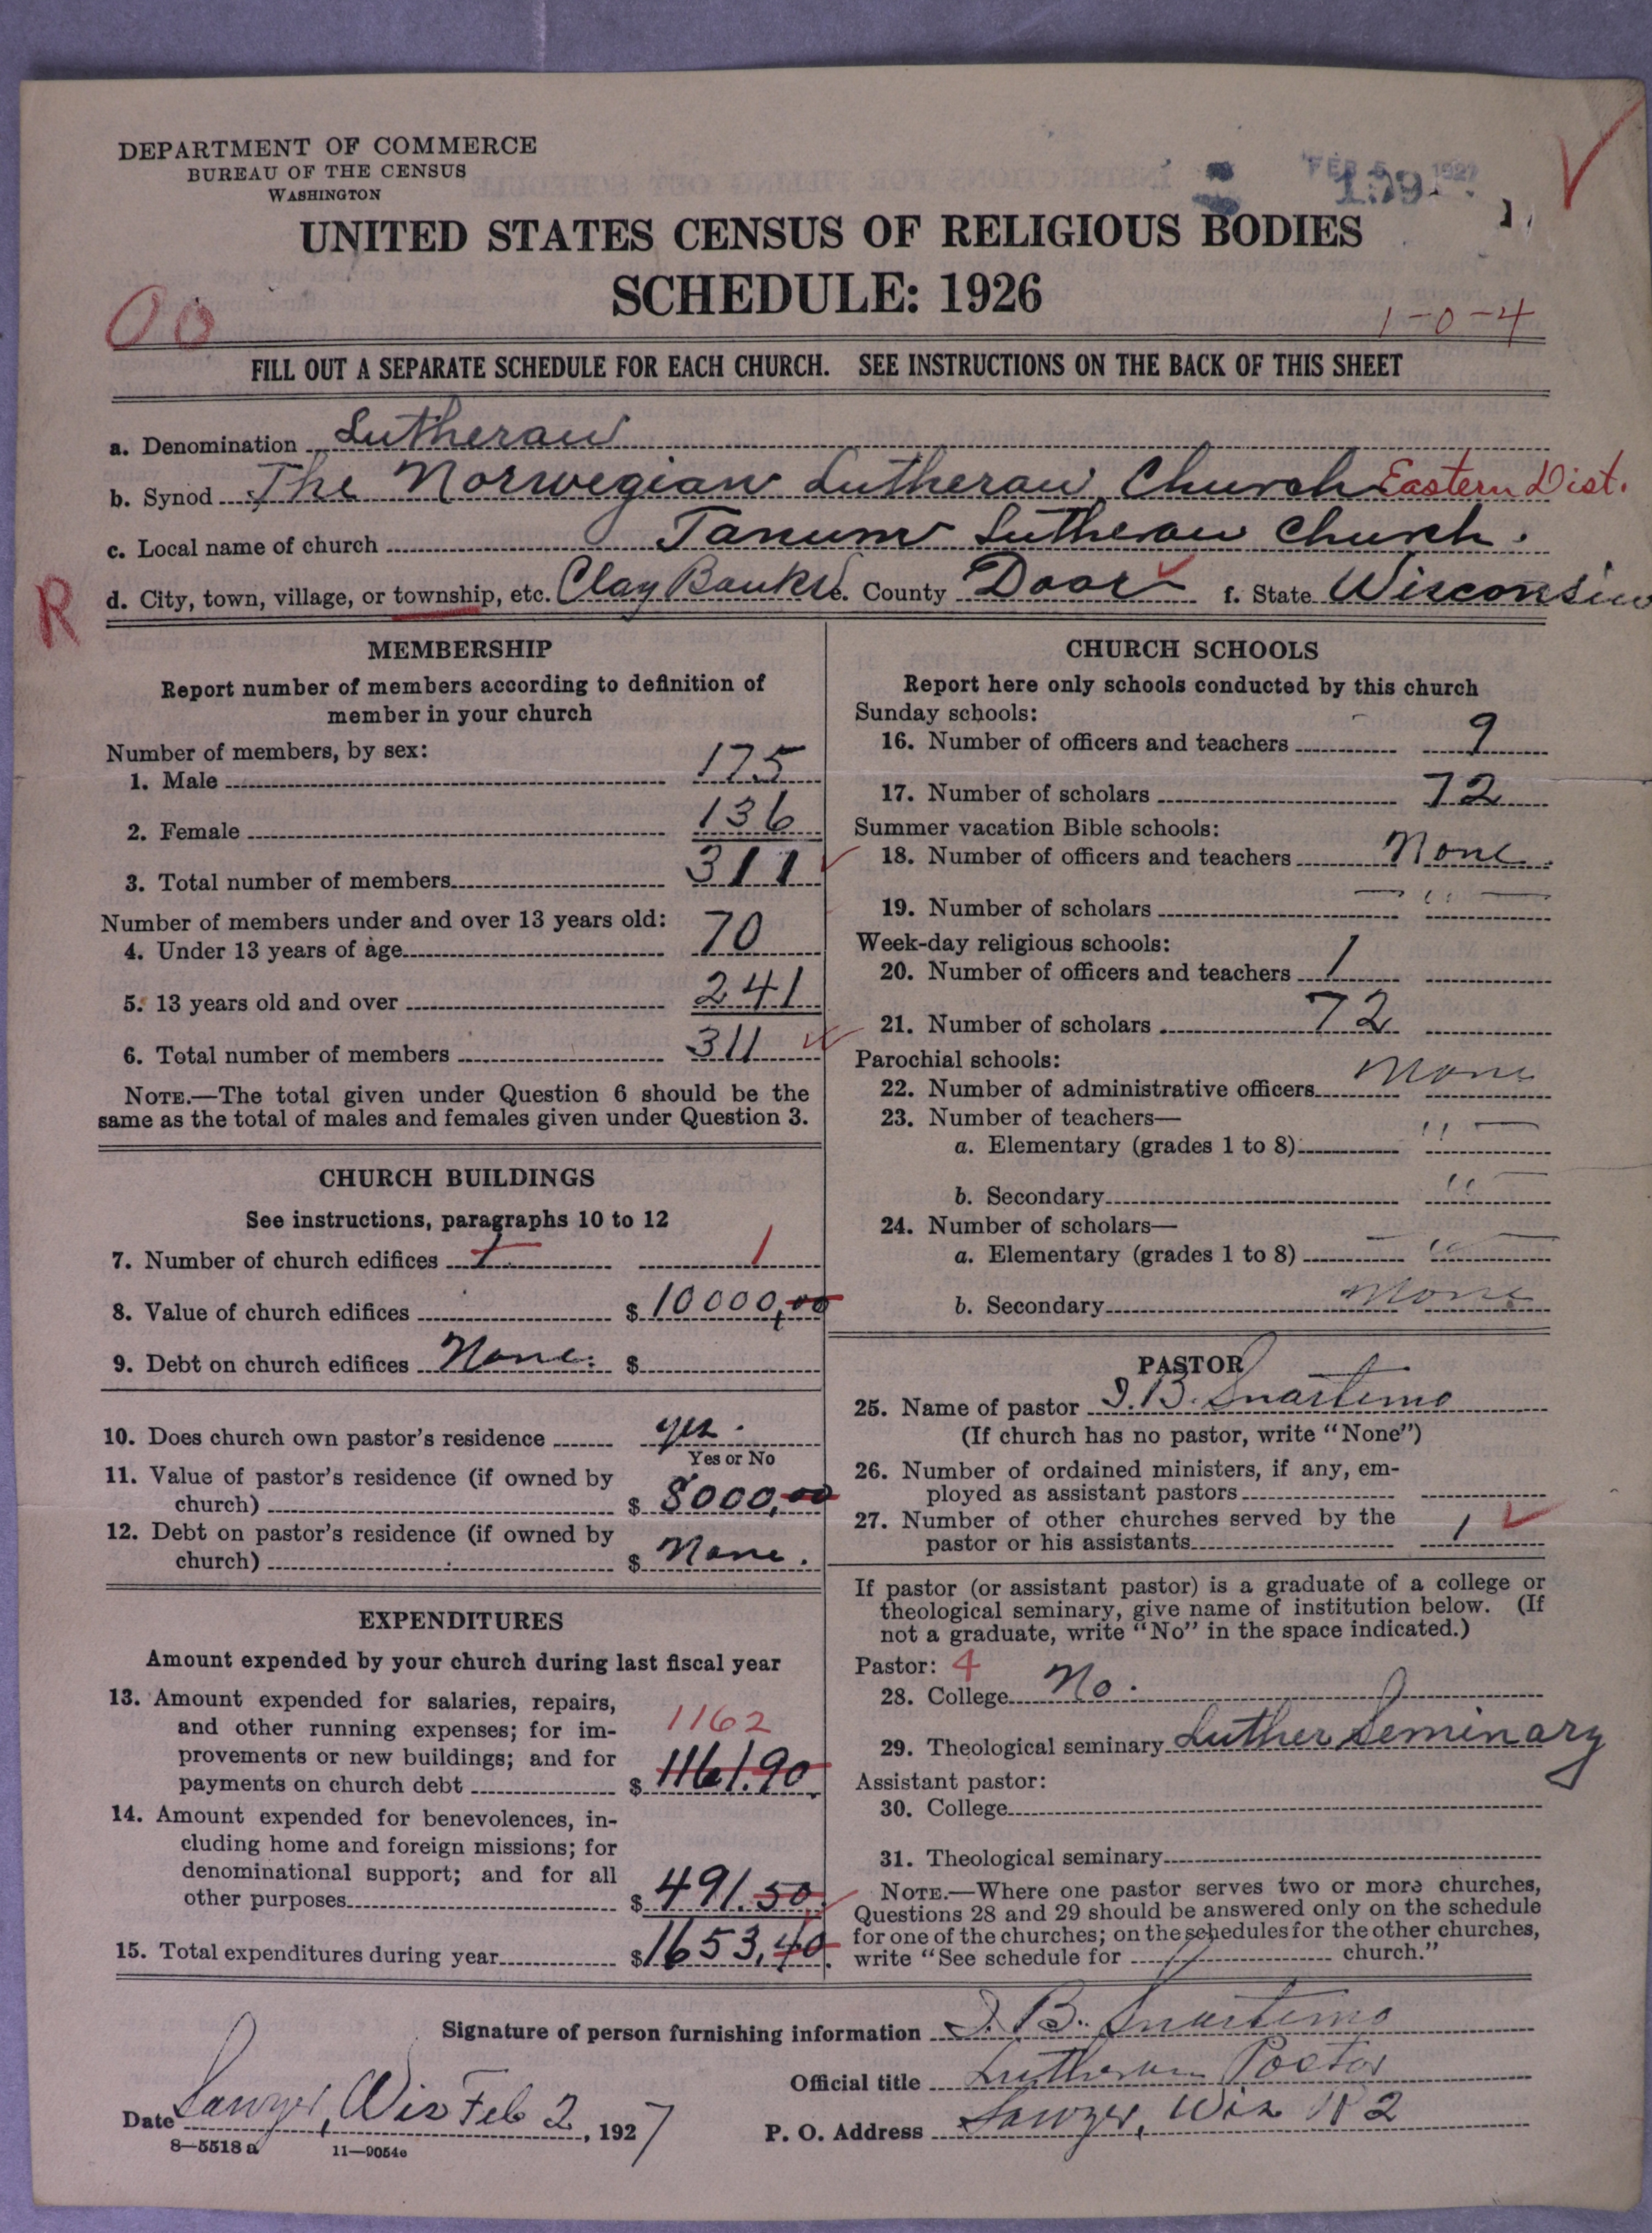 DEPARTMENT OF COMMERCE
BUREAU OF THE CENSUS
WASHINGTON
FEB 5 1927
UNITED STATES CENSUS OF RELIGIOUS BODIES
SCHEDULE: 1926
00
1-0-4
FILL OUT A SEPARATE SCHEDULE FOR EACH CHURCH. SEE INSTRUCTIONS ON THE BACK OF THIS SHEET
a. Denomination Lutheran
b. Synod The Norwegian Lutheran Church Eastern Dist.
c. Local name of church Tanum Lutheran Church.
R d. City, town, village, or township, etc. Clay Banks e. County Door f. State Wisconsin
MEMBERSHIP
Report number of members according to definition of
member in your church
Number of members, by sex:
1. Male 175
2. Female 136
3. Total number of members 311
Number of members under and over 13 years old:
4. Under 13 years of age 70
5. 13 years old and over 241
6. Total number of members 311
NOTE.—The total given under Question 6 should be the
same as the total of males and females given under Question 3.
CHURCH BUILDINGS
See instructions, paragraphs 10 to 12
7. Number of church edifices 1 1
8. Value of church edifices $ 10000,00
9. Debt on church edifices None. $
10. Does church own pastor's residence yes.
Yes or No
11. Value of pastor's residence (if owned by
church) $ 8000,00
12. Debt on pastor's residence (if owned by
church) $ None.
EXPENDITURES
Amount expended by your church during last fiscal year
13. Amount expended for salaries, repairs,
and other running expenses; for im-
1162
provements or new buildings; and for
payments on church debt $ 1161.90
14. Amount expended for benevolences, in-
cluding home and foreign missions; for
denominational support; and for all
other purposes $ 491.50
15. Total expenditures during year $ 1653,40
CHURCH SCHOOLS
Report here only schools conducted by this church
Sunday schools:
16. Number of officers and teachers 9
17. Number of scholars 72
Summer vacation Bible schools:
18. Number of officers and teachers None
19. Number of scholars — " —
Week-day religious schools:
20. Number of officers and teachers 1
21. Number of scholars 72
Parochial schools:
22. Number of administrative officers None
23. Number of teachers—
a. Elementary (grades 1 to 8) " —
b. Secondary " —
24. Number of scholars—
a. Elementary (grades 1 to 8) — " —
b. Secondary None
PASTOR
25. Name of pastor I. B. Snartemo
(If church has no pastor, write "None")
26. Number of ordained ministers, if any, em-
ployed as assistant pastors
27. Number of other churches served by the
pastor or his assistants 1
If pastor (or assistant pastor) is a graduate of a college or
theological seminary, give name of institution below. (If
not a graduate, write "No" in the space indicated.)
Pastor: 4
28. College No.
29. Theological seminary Luther Seminary
Assistant pastor:
30. College
31. Theological seminary
NOTE.—Where one pastor serves two or more churches,
Questions 28 and 29 should be answered only on the schedule
for one of the churches; on the schedules for the other churches,
write "See schedule for church."
Signature of person furnishing information I. B. Snartemo
Official title Lutheran Pastor
Date Sawyer, Wis Feb 2, 1927
P. O. Address Sawyer, Wis R 2
8—5518 a 11—9054e